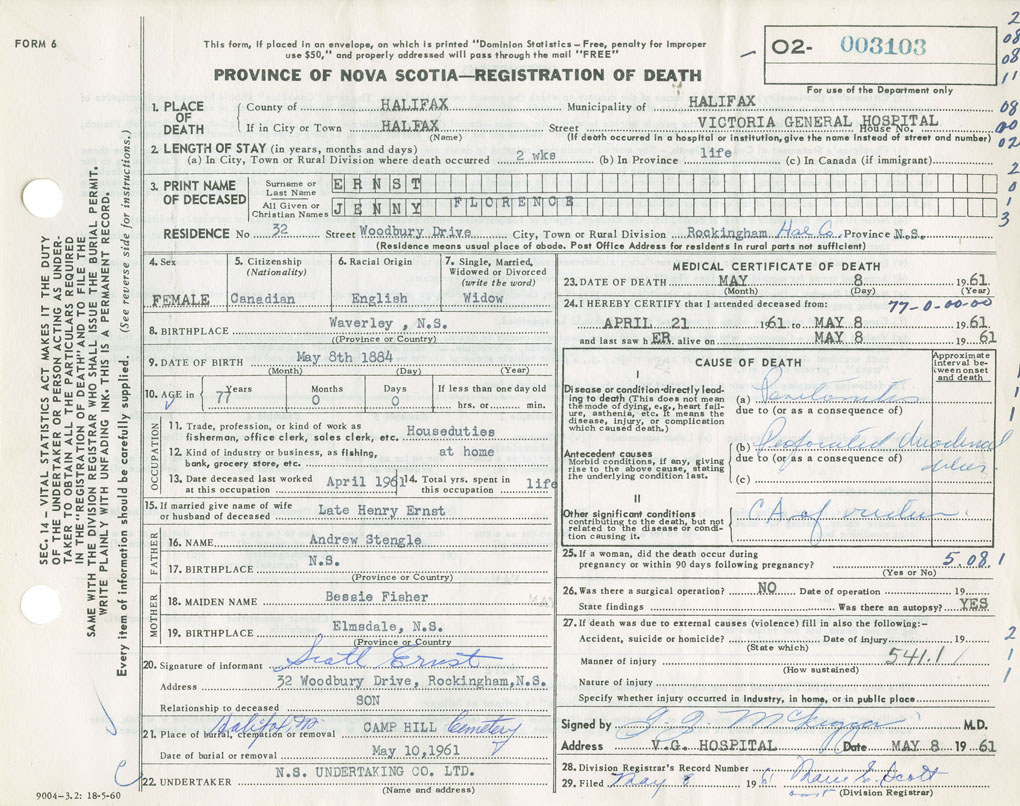 FORM 6
This form, if placed in an envelope, on which is printed "Dominion Statistics – Free, penalty for improper
use $50," and properly addressed will pass through the mail "FREE"
PROVINCE OF NOVA SCOTIA—REGISTRATION OF DEATH
O2- 003103
For use of the Department only
2
08
08
11
08
00
02
2
0
1
3
1. PLACE OF DEATH
County of HALIFAX Municipality of HALIFAX
If in City or Town HALFAX Street VICTORIA GENERAL HOSPITAL House No.
(Name) (If death occurred in a hospital or institution, give the name instead of street and number)
2. LENGTH OF STAY (in years, months and days)
(a) In City, Town or Rural Division where death occurred 2 wks (b) In Province life (c) In Canada (if immigrant)
3. PRINT NAME OF DECEASED
Surname or Last Name ERNST
All Given or Christian Names JENNY FLORENCE
RESIDENCE No 32 Street Woodbury Drive City, Town or Rural Division Rockingham Hfx Co. Province N.S.
(Residence means usual place of abode. Post Office Address for residents in rural parts not sufficient)
4. Sex FEMALE
5. Citizenship (Nationality) Canadian
6. Racial Origin English
7. Single, Married, Widowed or Divorced (write the word) Widow
8. BIRTHPLACE Waverley , N.S.
(Province or Country)
9. DATE OF BIRTH May 8th 1884
(Month) (Day) (Year)
10. AGE in Years 77 Months 0 Days 0 If less than one day old hrs. or min.
OCCUPATION
11. Trade, profession, or kind of work as fisherman, office clerk, sales clerk, etc. Houseduties
12. Kind of industry or business, as fishing, bank, grocery store, etc. at home
13. Date deceased last worked at this occupation April 1961
14. Total yrs. spent in this occupation life
15. If married give name of wife or husband of deceased Late Henry Ernst
FATHER
16. NAME Andrew Stengle
17. BIRTHPLACE N.S.
(Province or Country)
MOTHER
18. MAIDEN NAME Bessie Fisher
19. BIRTHPLACE Elmsdale, N.S.
(Province or Country
20. Signature of informant Scott Ernst
Address 32 Woodbury Drive, Rockingham,N.S.
Relationship to deceased SON
21. Place of burial, cremation or removal Halifax CAMP HILL Cemetery
Date of burial or removal May 10,1961
22. UNDERTAKER N.S. UNDERTAKING CO. LTD.
(Name and address)
9004–3.2: 18-5-60
SEC. 14 – VITAL STATISTICS ACT MAKES IT THE DUTY
OF THE UNDERTAKER OR PERSON ACTING AS UNDER-
TAKER TO OBTAIN ALL THE PARTICULARS REQUIRED
IN THE "REGISTRATION OF DEATH" AND TO FILE THE
SAME WITH THE DIVISION REGISTRAR WHO SHALL ISSUE THE BURIAL PERMIT.
WRITE PLAINLY WITH UNFADING INK. THIS IS A PERMANENT RECORD.
Every item of information should be carefully supplied. (See reverse side for instructions.)
MEDICAL CERTIFICATE OF DEATH
23. DATE OF DEATH MAY 8 1961
(Month) (Day) (Year)
24. I HEREBY CERTIFY that I attended deceased from: 77-0-00-00
APRIL 21 1961 to MAY 8 1961
and last saw hER. alive on MAY 8 1961
CAUSE OF DEATH
Approximate interval between onset and death
I
Disease or condition directly leading to death (This does not mean the mode of dying, e.g., heart failure, asthenia, etc. It means the disease, injury, or complication which caused death.)
(a) Peritonitis
due to (or as a consequence of)
Antecedent causes
Morbid conditions, if any, giving rise to the above cause, stating the underlying condition last.
(b) Perforated duodenal ulcer
due to (or as a consequence of)
(c)
II
Other significant conditions contributing to the death, but not related to the disease or condition causing it.
CA of rectum
25. If a woman, did the death occur during pregnancy or within 90 days following pregnancy? 5.081
(Yes or No)
26. Was there a surgical operation? NO Date of operation 19
State findings Was there an autopsy? YES
27. If death was due to external causes (violence) fill in also the following:–
Accident, suicide or homicide? Date of injury 19
(State which) 541.1
Manner of injury
(How sustained)
Nature of injury
Specify whether injury occurred in industry, in home, or in public place
2
1
1
Signed by M.D.
Address V.G. HOSPITAL Date MAY 8 1961
28. Division Registrar's Record Number
29. Filed May 8 1961 Marie E. Scott
(Division Registrar)